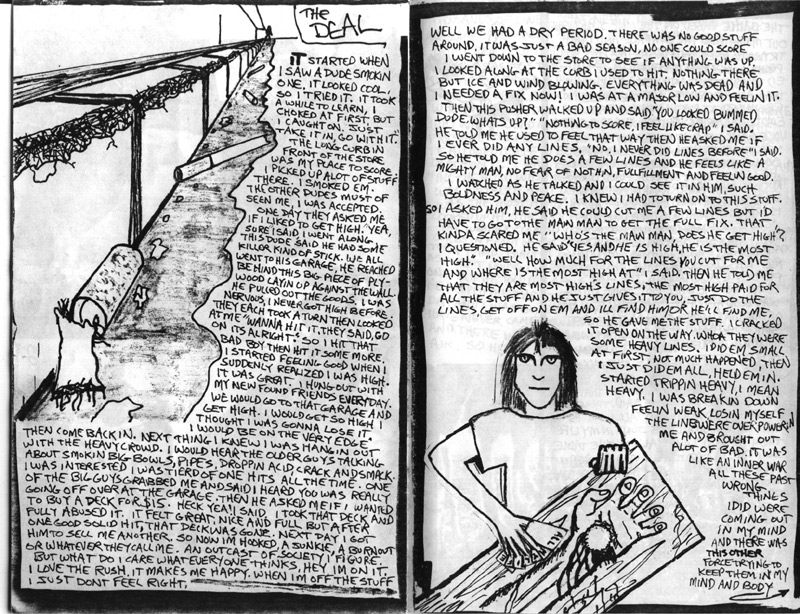 THE
DEAL
IT STARTED WHEN
I SAW A DUDE SMOKIN
ONE, IT LOOKED COOL,
SO I TRIED IT. IT TOOK
A WHILE TO LEARN, I
CHOKED AT FIRST, BUT
I CAUGHT ON. JUST
TAKE IT IN, GO WITH IT.
THE LONG CURB IN
FRONT OF THE STORE
WAS MY PLACE TO SCORE.
I PICKED UP ALOT OF STUFF
THERE. I SMOKED EM.
THE OTHER DUDES MUST OF
SEEN ME, I WAS ACCEPTED.
ONE DAY THEY ASKED ME
IF I LIKED TO GET HIGH. YEA,
SURE I SAID I WENT ALONG
THIS DUDE SAID HE HAD SOME
KILLOR KIND OF STICK. WE ALL
WENT TO HIS GARAGE, HE REACHED
BEHIND THIS BIG PIECE OF PLY-
WOOD LAYIN UP AGAINST THE WALL.
HE PULLED OUT THE GOODS. I WAS
NERVOUS, I NEVER GOT HIGH BEFORE.
THEY EACH TOOK A TURN THEN LOOKED
AT ME "WANNA HIT IT, THEY SAID, GO
ON ITS ALRIGHT". SO I HIT THAT
BAD BOY THEN HIT IT SOME MORE.
I STARTED FEELING GOOD WHEN I
SUDDENLY REALIZED I WAS HIGH.
IT WAS GREAT. I HUNG OUT WITH
MY NEW FOUND FRIENDS EVERYDAY.
WE WOULD GO TO THAT GARAGE AND
GET HIGH. I WOULD GET SO HIGH I
THOUGHT I WAS GONNA LOSE IT
I WOULD BE ON THE VERY EDGE
THEN COME BACK IN. NEXT THING I KNEW I WAS HANGIN OUT
WITH THE HEAVY CROWD. I WOULD HEAR THE OLDER GUYS TALKING
ABOUT SMOKIN BIG BOWLS, PIPES, DROPPIN ACID, CRACK AND SMACK.
I WAS INTERESTED I WAS TIRED OF ONE HITS ALL THE TIME. ONE
OF THE BIG GUYS GRABBED ME AND SAID I HEARD YOU WAS REALLY
GOING OFF OVER AT THE GARAGE. THEN HE ASKED ME IF I WANTED
TO BUY A DECK FOR $15. HECK YEA! I SAID. I TOOK THAT DECK AND
FULLY ABUSED IT. IT FELT GREAT, NICE AND FULL. BUT AFTER
ONE GOOD SOLID HIT, THAT DECK WAS GONE. NEXT DAY I GOT
HIM TO SELL ME ANOTHER. SO NOW IM HOOKED, A JUNKIE, A BURNOUT
OR WHATEVER THEY CALL ME. AN OUTCAST OF SOCIETY I FIGURE.
BUT WHAT DO I CARE WHAT EVERYONE THINKS, HEY IM ON IT.
I LOVE THE RUSH, IT MAKES ME HAPPY. WHEN IM OFF THE STUFF
I JUST DONT FEEL RIGHT,
WELL WE HAD A DRY PERIOD. THERE WAS NO GOOD STUFF
AROUND, IT WAS JUST A BAD SEASON, NO ONE COULD SCORE
I WENT DOWN TO THE STORE TO SEE IF ANYTHING WAS UP.
I LOOKED ALONG AT THE CURB I USED TO HIT. NOTHING THERE
BUT ICE AND WIND BLOWING. EVERYTHING WAS DEAD AND
I NEEDED A FIX NOW! I WAS AT A MAJOR LOW AND FEELIN IT.
THEN THIS PUSHER WALKED UP AND SAID "YOU LOOKED BUMMED
DUDE. WHATS UP?" "NOTHING TO SCORE, I FEEL LIKE CRAP" I SAID.
HE TOLD ME HE USED TO FEEL THAT WAY THEN HE ASKED ME IF
I EVER DID ANY LINES, "NO, I NEVER DID LINES BEFORE" I SAID.
SO HE TOLD ME HE DOES A FEW LINES AND HE FEELS LIKE A
MIGHTY MAN, NO FEAR OF NOTHN, FULFILLMENT AND FEELIN GOOD.
I WATCHED AS HE TALKED AND I COULD SEE IT IN HIM, SUCH
BOLDNESS AND PEACE. I KNEW I HAD TO TURN ON TO THIS STUFF.
SO I ASKED HIM, HE SAID HE COULD CUT ME A FEW LINES BUT I'D
HAVE TO GO TO THE MAN MAN TO GET THE FULL FIX. THAT
KINDA SCARED ME "WHO'S THE MAN MAN, DOES HE GET HIGH"?
I QUESTIONED. HE SAID "YES AND HE IS HIGH, HE IS THE MOST
HIGH." "WELL HOW MUCH FOR THE LINES YOU CUT FOR ME
AND WHERE IS THE MOST HIGH AT" I SAID. THEN HE TOLD ME
THAT THEY ARE MOST HIGH'S LINES, THE MOST HIGH PAID FOR
ALL THE STUFF AND HE JUST GIVES IT TO YOU, JUST DO THE
LINES, GET OFF ON EM AND ILL FIND HIM OR HE'LL FIND ME,
SO HE GAVE ME THE STUFF. I CRACKED
IT OPEN ON THE WAY. WHOA THEY WERE
SOME HEAVY LINES. I DID EM SMALL
AT FIRST, NOT MUCH HAPPENED, THEN
I JUST DID EM ALL, HELD EM IN.
STARTED TRIPPIN HEAVY, I MEAN
HEAVY. I WAS BREAKIN DOWN
FEELIN WEAK LOSIN MYSELF
THE LINES WERE OVER POWERIN
ME AND BROUGHT OUT
ALOT OF BAD. IT WAS
LIKE AN INNER WAR
ALL THESE PAST
WRONG
THINGS
I DID WERE
COMING OUT
IN MY MIND
AND THERE WAS
THIS OTHER
FORCE TRYING TO
KEEP THEM IN MY
MIND AND BODY